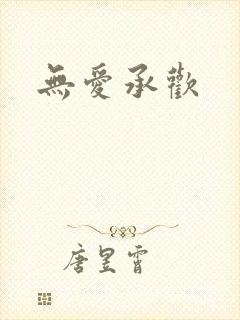 無愛承歡
唐昱霄